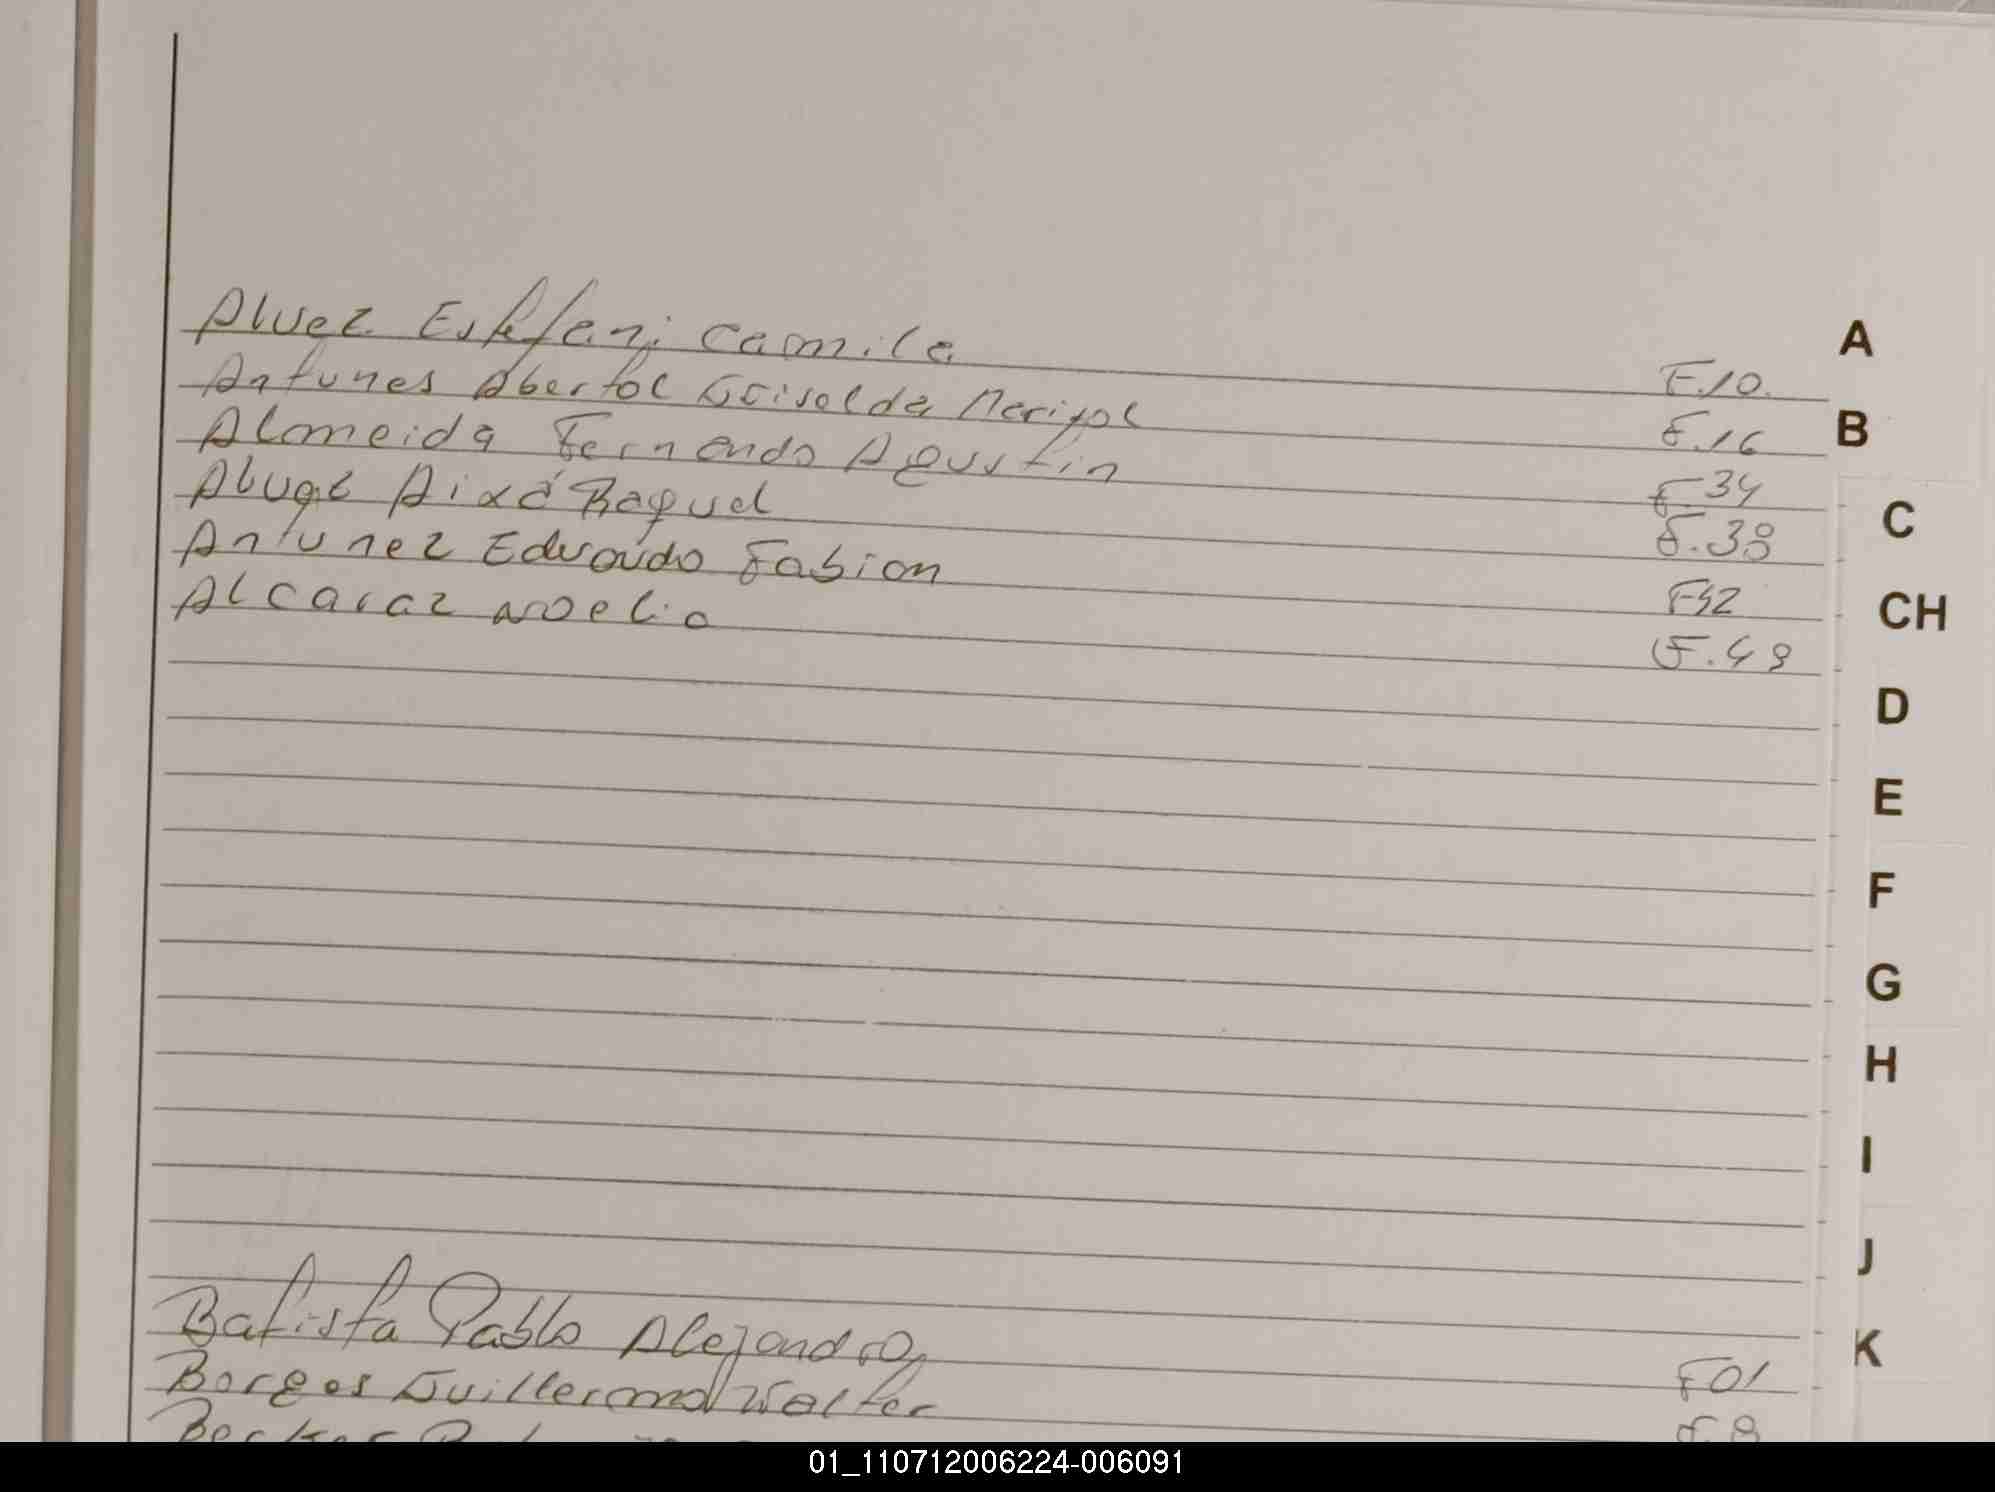 Alvez Estefani Camila F.10.
Antunes Abertol Griselda Marisol F.16
Almeida Fernando Agustin F 34
Alvez Aixá Raquel F.38
Antunez Eduardo Fabian F42
Alcaraz Noelia F.48
Batista Pablo Alejandro F01
Borges Guillermo Walter F.8
A
B
C
CH
D
E
F
G
H
I
J
K
01_110712006224-006091